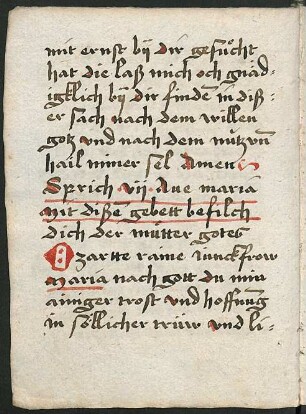 mit ernst bÿ dir gesůcht
hat die laß mich och gnäd-
igklich bÿ dir finden̄ in diß-
er sach nach dem willen
gotz vnd nach dem nutz vn̄
hail miner sel Amen
Sprich vij Aue maria
mit dißē gebett befilch
dich der mutter gotes
O zartte raine iunckfrow
maria nach gott du min
ainiger trost vnd hoffnūg
in söllicher trüw vnd li-